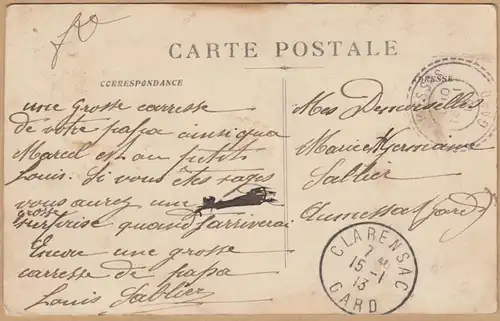 CARTE POSTALE
CORRESPONDANCE
ADRESSE
une grosse carresse
de votre papa ainsi qua
Marcel et au petit
Louis. Si vous êtes sages
vous aurez une
grosse
surprise quand j'arriverai
Encore une grosse
carresse de papa
Louis Sablier
Mes Demoiselles
Marie & Germaine
Sablier
Aumessas (Gard)
GARD
CLARENSAC
15 - 1
13
GARD